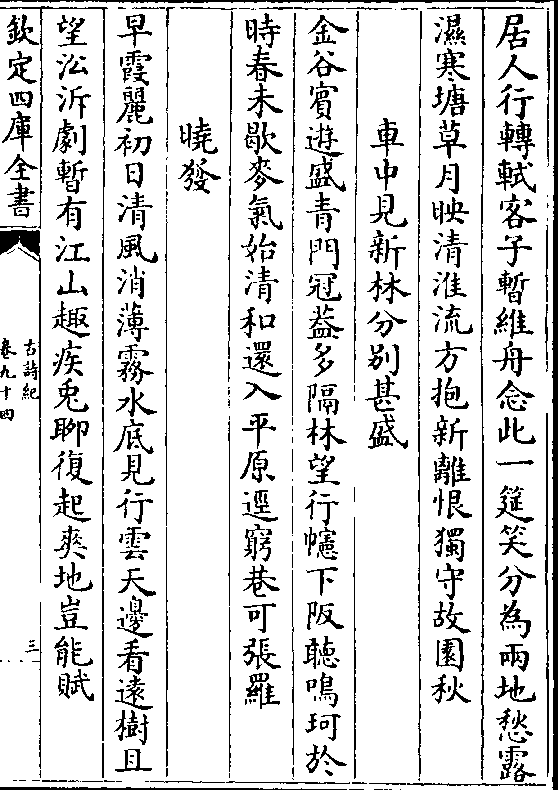 居人行轉軾客子暫維舟念此一筵笑分為兩地愁露
濕寒塘草月映清淮流方抱新離恨獨守故園秋
車中見新林分別甚盛
金谷賓遊盛青門冠葢多隔林望行幰下阪聽鳴珂於
時春未歇麥氣始清和還入平原逕窮巷可張羅
曉發
早霞麗初日清風消薄霧水底見行雲天邊看遠樹且
望沿泝劇暫有江山趣疾兎聊復起爽地豈能賦
欽定四庫全書
古詩紀
卷九十四
三